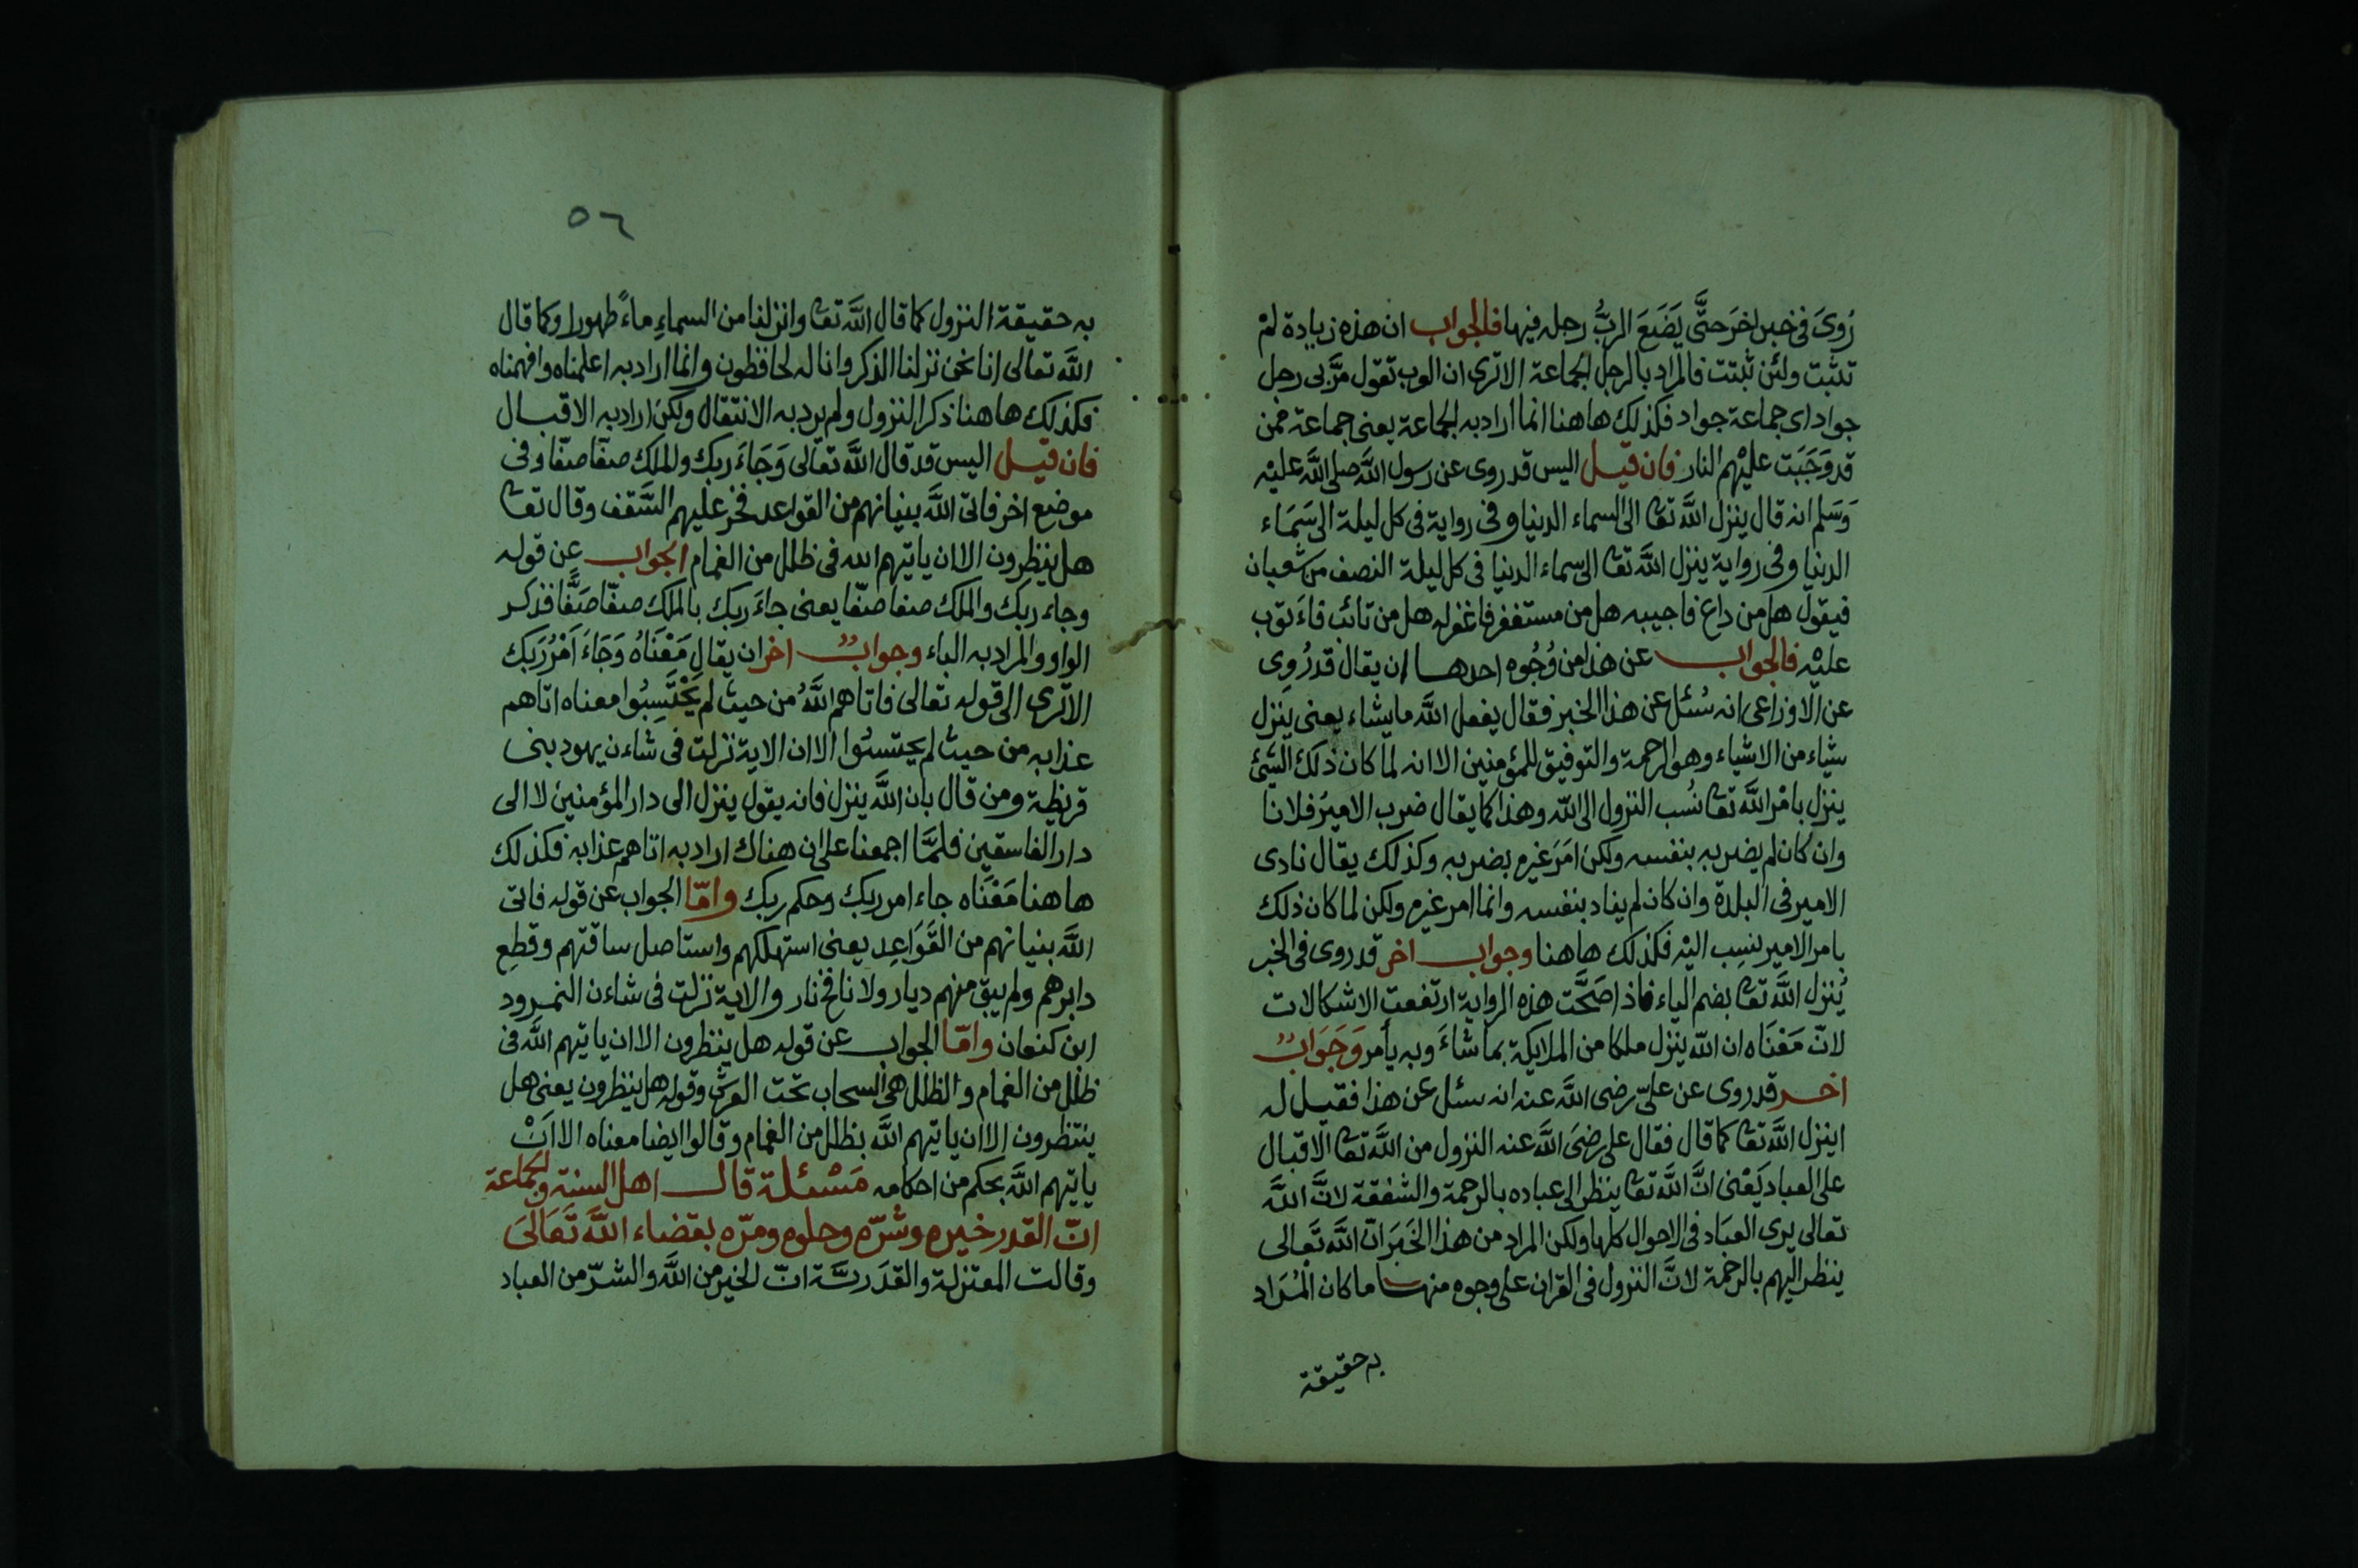 رُوىَ فى خبر اخرَ حتَّى يَضَعَ الربُّ رجله فيها فالجواب ان هذه زيادة لمْ
تثبت ولئن ثبتت فالمراد بالرجل الجماعة الا ترى ان العرب تقول مرَّ بى رجل
جواد اى جماعة جواد فكذلك هاهنا انما اراد به الجماعة يعنى جماعة ممن
قد وَجَبَت عليْهم النار فان قيل اليس قد روى عن رسول اللَّه صلى اللَّه عليْه
وَسَلم انه قال ينزل اللَّه تعا الى السماء الدنيا وفى رواية فى كل ليلة الى سَمَاء
الدنيا وفى رواية ينزل اللَّه تعا الى سماء الدنيا فى كل ليلة النصف من شعبان
فيقول هل من داع فاجيبه هل من مستغفر فاغفر له هل من تائب فاءَتوب
عليْه فالجواب عن هذا من وُجُوه احدها ان يقال قد رُوِى
عن الاوزاعى انه سُئل عن هذا الخبر فقال يفعل اللَّه ما يشاء يعنى ينزل
شياء من الاشياء وهو الرحمة والتوفيق للمؤمنين الا انه لما كان ذلك الشئ
ينزل بامْر اللَّه تعا نُسب النزول الى اللّه وهذا كما يقال ضرب الاميرُ فلانا
وان كان لم يضربه بنفسه ولكن امَرَ غيره بضربه وكذلك يقال نادى
الامير فى البلدة وان كان لم يناد بنفسه وانما امر غيره ولكن لما كان ذلك
بامر الامير نسِب اليْه فكذلك هاهنا وجواب اخر قد روى فى الخبر
يُنزل اللَّه تعا بضم الياء فاذا صَحَّت هذه الرواية ارتفعت الاشكالات
لانّ مَعْنَاه ان اللّه ينزل ملكا من الملايكة بما شاءَ وبه يأمر وَجَوَابٌ
اخر قد روى عن علىّ رضى اللَّه عنه انه سئل عن هذا فقيل له
اينزل اللَّه تعا كما قال فقال على رضىَ اللَّه عنه النزول من اللَّه تعا الاقبال
على العباد يَعْنى انَّ اللَّه تعا ينظر الى عباده بالرحمة والشفقة لانَّ اللَّه
تعالى يرى العبَاد فى الاحوال كلها ولكن المراد من هذا الخَبَر انّ اللَّه تَعالى
ينظر اليهم بالرحمَة لانَّ النزول فى القران على وجوه منها ما كان المُرَاد
به حقيقة
٥٦
به حقيقة النزول كما قال اللَّه تعا وانزلنا من السماءِ ماءً طهورا وكما قال
اللَّه تعالى انا نحن نزلنا الذكر وانا له لحافظون وانما اراد به اعلمناه وافهمناه
فكذلك هاهنا ذكر النزول ولم يرد به الانتقال ولكن اراد به الاقبال
فان قيل اليس قد قال اللَّه تعالى وَجَاءَ ربك والملك صفّا صفّا وفى
موضع اخر فاتى اللَّه بنيانهم من القواعد فخر عليهم السَّقف وقال تعا
هل ينظرون الا ان ياتيهم الله فى ظلل من الغمام الجواب عن قوله
وجاء ربك والملك صفا صفّا يعنى جاءَ ربك بالملك صفّا صَفًّا فذكر
الواو والمراد به الباء وجوابٌ اخر ان يقال مَعْنَاهُ وَجَاءَ اَمْرُ رَبك
الا ترى الى قوله تعالى فاتاهم اللَّهُ من حيث لم يَحْتَسِبُوا معناه اتاهم
عذابه من حيث لم يحتسبُوا الا ان الاية نزلت فى شاءن يهود بنى
قريظة ومن قال بان اللَّه ينزل فانه يقول ينزل الى دار المؤمنين لا الى
دار الفاسقين فلمَّا اجمعنا على ان هناك اراد به اتاهم عذابه فكذلك
هاهنا مَعْنَاه جاء امر ربك وحكم ربك وامّا الجواب عن قوله فاتى
اللَّه بنيانهم من القَوَاعِد يعنى استهلكهم واستاصل ساقتهم وقطِع
دابرهم ولم يبق منهم ديار ولا نافخ نار والاية نزلت فى شاءن النمرود
ابن كنعان وامّا الجواب عن قوله هل ينظرون الا ان ياتيهم اللَّه فى
ظلل من الغمام والظلل هى السحاب تحت العرش وقوله هل ينظرون يعنى هل
ينتظرون الا ان ياتيهم اللَّه بظلل من الغمام وقالوا ايضا معناه الا اَنْ
ياتيهم اللَّه بحكم من احكامه مَسْئلة قال اهل السنة والجماعة
انّ القدر خيره وشرّه وحلوه ومرّه بقضاء اللَّه تَعَالىَ
وقالت المعتزلة والقدَريَّة انّ الخير من اللَّه والشرّ من العباد